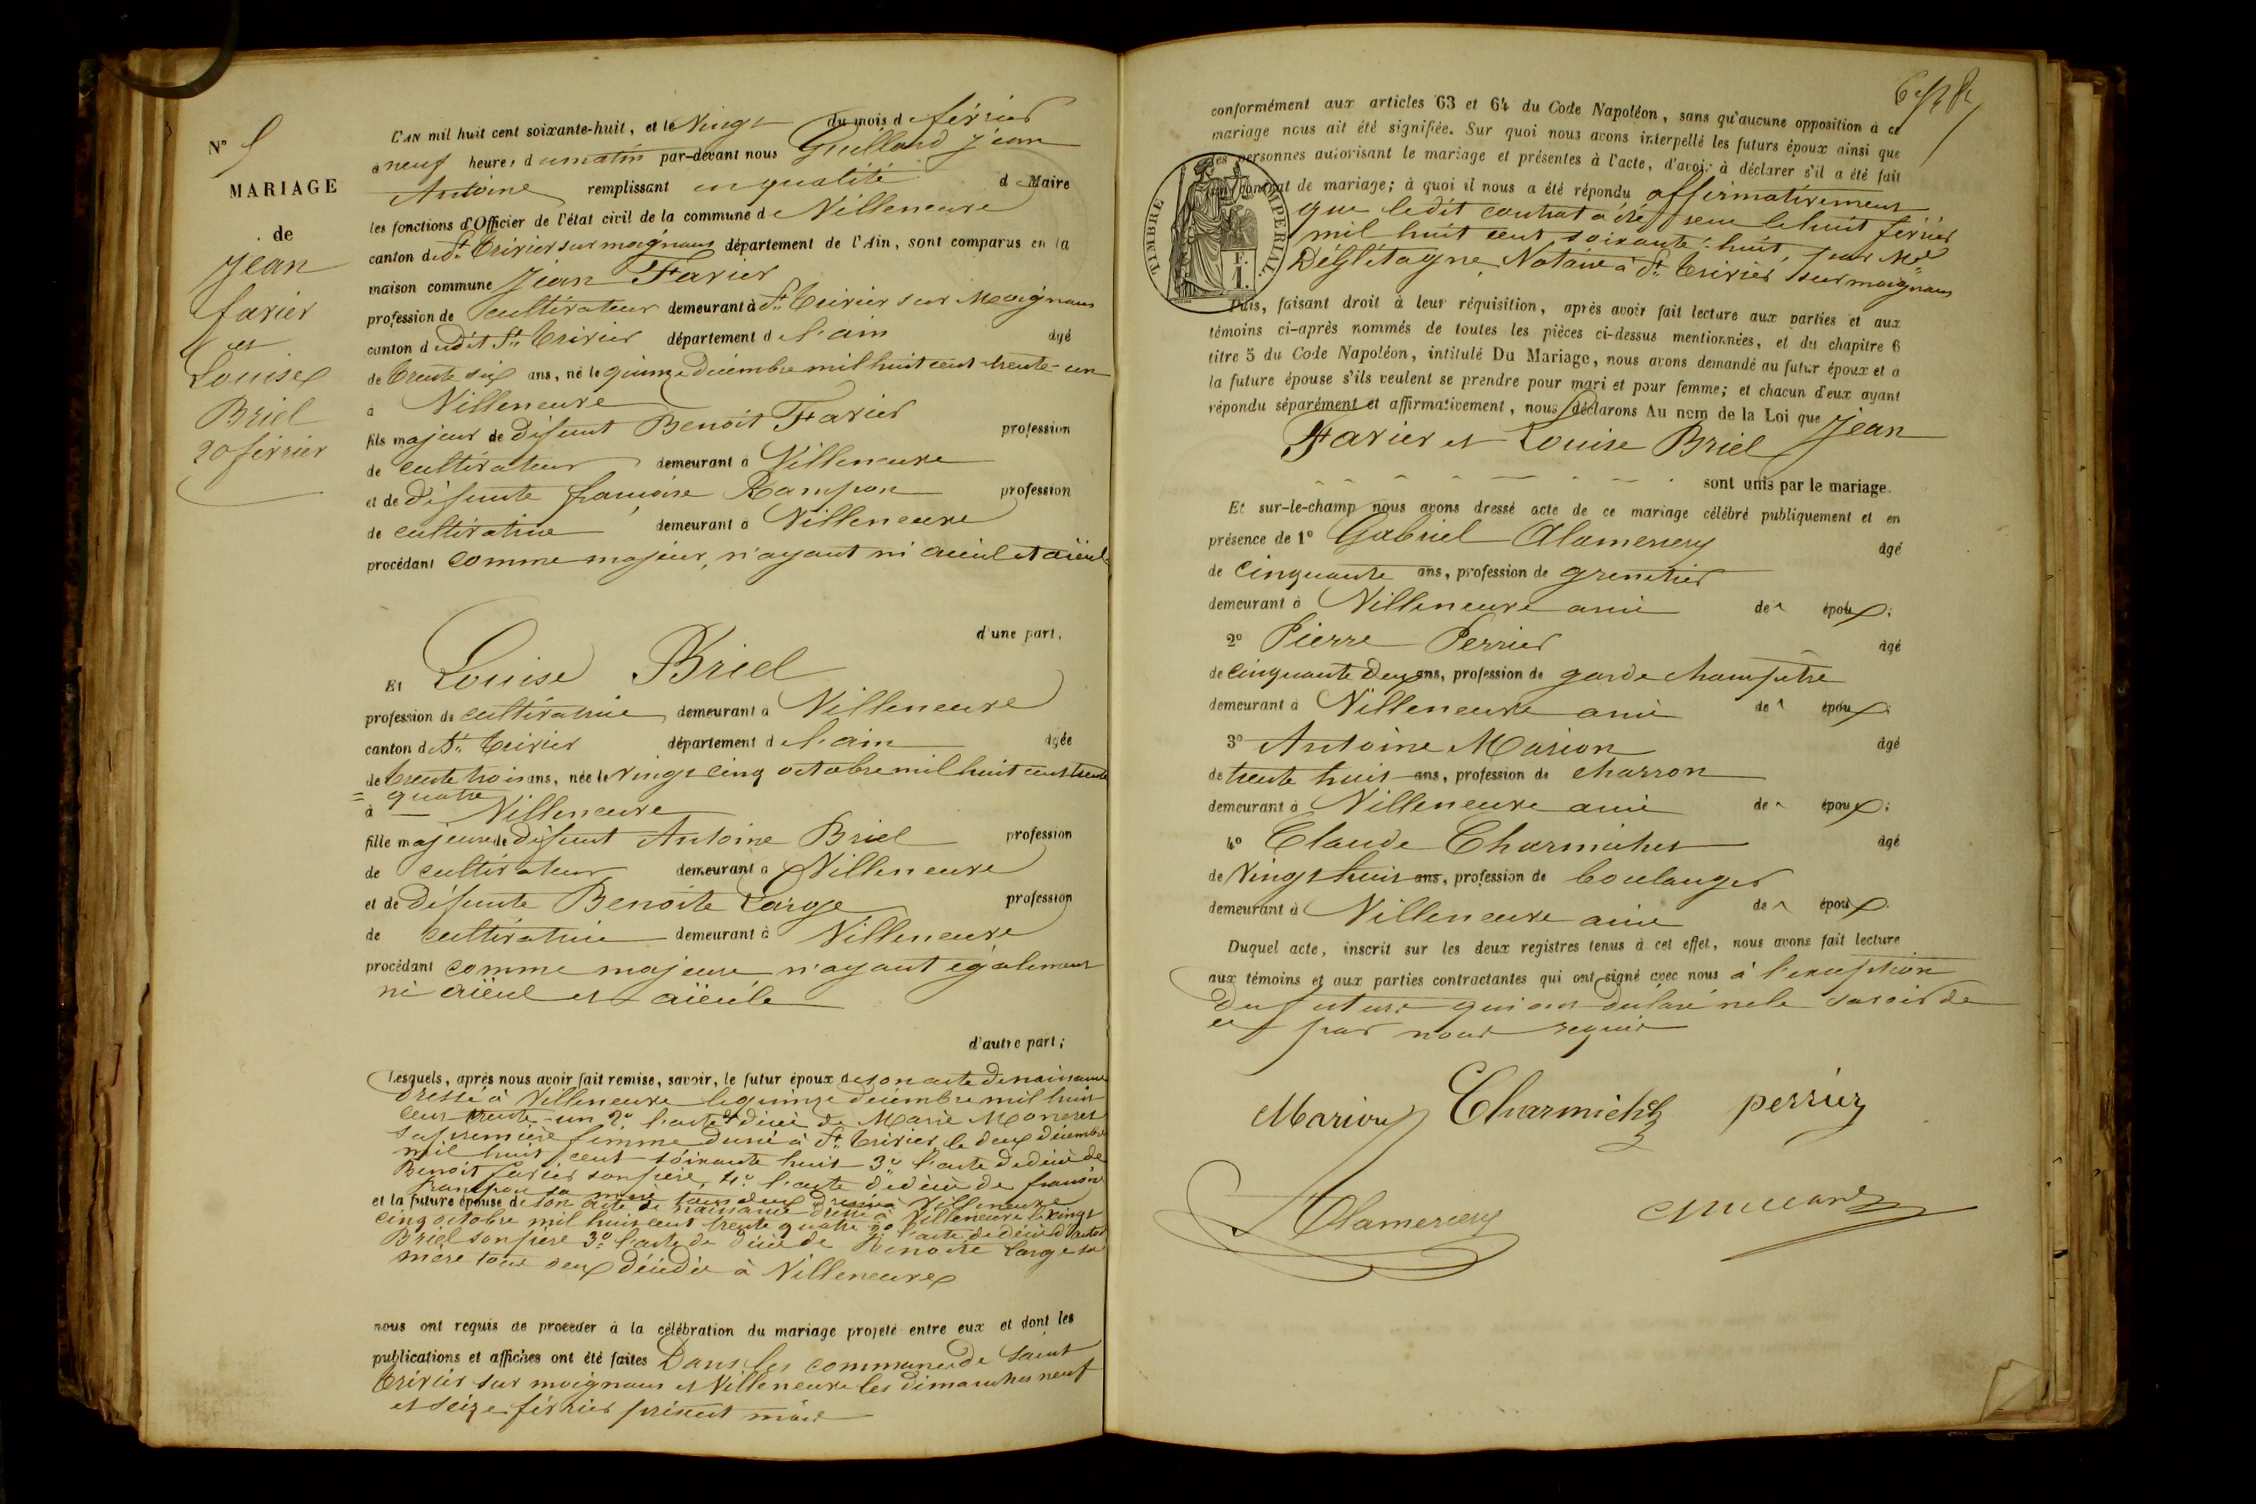 N° 5
MARIAGE
de
Jean
farier
et
Louise
Briel
20 février
L'AN mil huit cent soixante-huit, et le Vingt du mois de février
à neuf heures du matin par-devant nous Guillard Jean
Antoine remplissant en qualité de Maire
les fonctions d'Officier de l'état civil de la commune de Villeneuve
canton de St. Trivier sur moignans département de l'Ain, sont comparus en la
maison commune Jean Farier
profession de cultivateur demeurant à St. Trivier sur Moignans
canton dudit St. Trivier département de l'ain âgé
de trente six ans, né le quinze décembre mil huit cent trente-un
à Villeneuve
fils majeur de défunt Benoît Farier profession
de cultivateur demeurant à Villeneuve
et de défunte françoise Rampon profession
de cultivatrice demeurant à Villeneuve
procédant comme majeur, n'ayant ni aïeul et aïeule
d'une part,
Et Louise Briel
profession de cultivatrice demeurant à Villeneuve
canton de St. Trivier département de l'ain âgée
de trente trois ans, née le vingt cinq octobre mil huit cent trente
= quatre
à Villeneuve
fille majeure de défunt Antoine Briel profession
de cultivateur demeurant à Villeneuve
et de défunte Benoite Large profession
de cultivatrice demeurant à Villeneuve
procédant comme majeure n'ayant également
ni aïeul et aïeule
d'autre part;
Lesquels, après nous avoir fait remise, savoir, le futur époux de son acte de naissance
dressé à Villeneuve le quinze décembre mil huit
cent trente-un 2° l'acte de décès de Marie
sa première femme à St. Trivier le deux décembre
mil huit cent soixante huit 3° l'acte de décès de
Benoit farier son père, 4° l'acte de décès de françoise
Rampon sa mère tous deux dressés à Villeneuve
et la future épouse de son acte de naissance dressé à Villeneuve le vingt
cinq octobre mil huit cent trente quatre 2° l'acte de décès d'antoi
Briel son père 3° l'acte de décès de Benoite Large sa
mère tous deux décédés à Villeneuve
nous ont requis de procéder à la célébration du mariage projeté entre eux et dont les
publications et affiches ont été faites Dans les communes de Saint
Trivier sur moignans et Villeneuve les dimanches neuf
et seize février présent mois
conformément aux articles 63 et 64 du Code Napoléon, sans qu'aucune opposition à ce
mariage nous ait été signifiée. Sur quoi nous avons interpellé les futurs époux ainsi que
les personnes autorisant le mariage et présentes à l'acte, d'avoir à déclarer s'il a été fait
un contrat de mariage; à quoi il nous a été répondu affirmativement
que ledit contrat a été reçu le huit février
mil huit cent soixante-huit, par Me
Notaire à St. Trivier sur moignans
TIMBRE IMPÉRIAL.
F.
1.
Puis, faisant droit à leur réquisition, après avoir fait lecture aux parties et aux
témoins ci-après nommés de toutes les pièces ci-dessus mentionnées, et du chapitre 6
titre 5 du Code Napoléon, intitulé Du Mariage, nous avons demandé au futur époux et à
la future épouse s'ils veulent se prendre pour mari et pour femme; et chacun d'eux ayant
répondu séparément et affirmativement, nous déclarons Au nom de la Loi que Jean
Farier et Louise Briel
sont unis par le mariage.
Et sur-le-champ nous avons dressé acte de ce mariage célébré publiquement et en
présence de 1° Gabriel Alamercery âgé
de cinquante ans, profession de grenetier
demeurant à Villeneuve ami des époux;
2° Pierre Perrier âgé
de cinquante deux ans, profession de garde champêtre
demeurant à Villeneuve ami des époux;
3° Antoine Marion âgé
de trente huit ans, profession de charron
demeurant à Villeneuve ami des époux;
4° Claude Charmichet âgé
de Vingt huit ans, profession de boulanger
demeurant à Villeneuve ami des époux.
Duquel acte, inscrit sur les deux registres tenus à cet effet, nous avons fait lecture
aux témoins et aux parties contractantes qui ont signé avec nous à l'exception
des futurs qui ont déclaré ne le savoir de
ce par nous requis
Marion Charmichet perrier
Alamercery